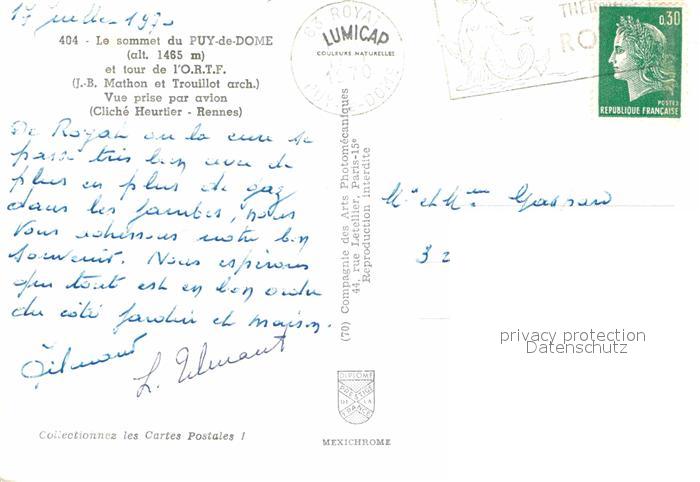 17 juillet 1970
404 - Le sommet du PUY-de-DOME
(alt. 1465 m)
et tour de l'O.R.T.F.
(J.-B. Mathon et Trouillot arch.)
Vue prise par avion
(Cliché Heurtier - Rennes)
De Royat ou la cure se
passe très bien avec de
plus en plus de gaz
dans les jambes, nous
vous adressons notre bon
souvenir. Nous espérons
que tout est en bon ordre
du côté jardin et maison.
L.
Collectionnez les Cartes Postales !
63 ROYAT
LUMICAP
COULEURS NATURELLES
1970
PUY-DE-DOME
THER
RO
0,30
POSTES
REPUBLIQUE FRANÇAISE
(70) Compagnie des Arts Photomécaniques
44, rue Letellier, Paris-15e
Reproduction interdite
Mr et Mme Gaspard
32
privacy protection
Datenschutz
DIPLOME
PRESTIGE
DE LA
FRANCE
MEXICHROME